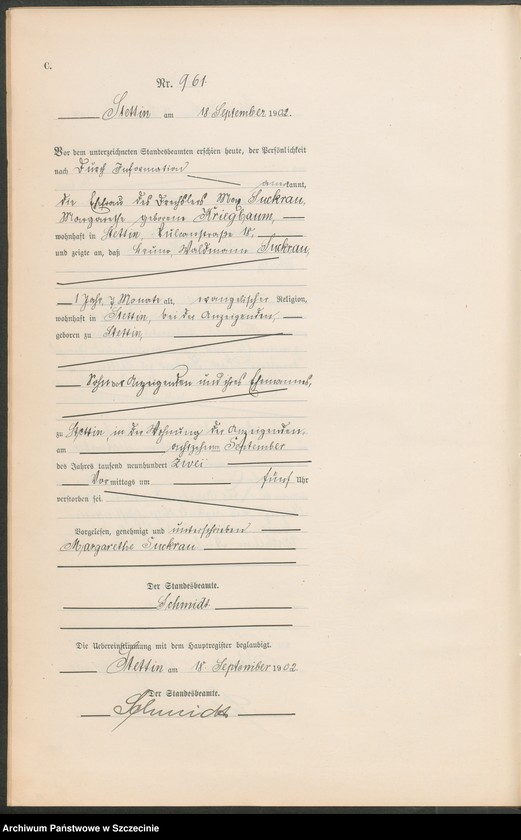 C.
Nr. 961
Stettin am 18 September 1902.
Vor dem unterzeichneten Standesbeamten erschien heute, der Persönlichkeit
nach durch Information
anerkannt,
die Ehefrau des Drechslers Max Suckrau,
Margarethe geborene Kriegbaum,
wohnhaft in Stettin,
und zeigte an, daß Bruno, Waldemar Suckrau,
1 Jahr, Monate alt, evangelischer Religion,
wohnhaft in Stettin, bei der Anzeigenden,
geboren zu Stettin,
Sohn der Anzeigenden und ihres Ehemannes,
zu Stettin, in der Wohnung der Anzeigenden
am achtzehnten September
des Jahres tausend neunhundert zwei
Vormittags um fünf Uhr
verstorben sei.
Vorgelesen, genehmigt und unterschrieben
Margarethe Suckrau
Der Standesbeamte.
Schmidt
Die Uebereinstimmung mit dem Hauptregister beglaubigt.
Stettin am 18 September 1902
Der Standesbeamte.
Schmidt
Archiwum Państwowe w Szczecinie